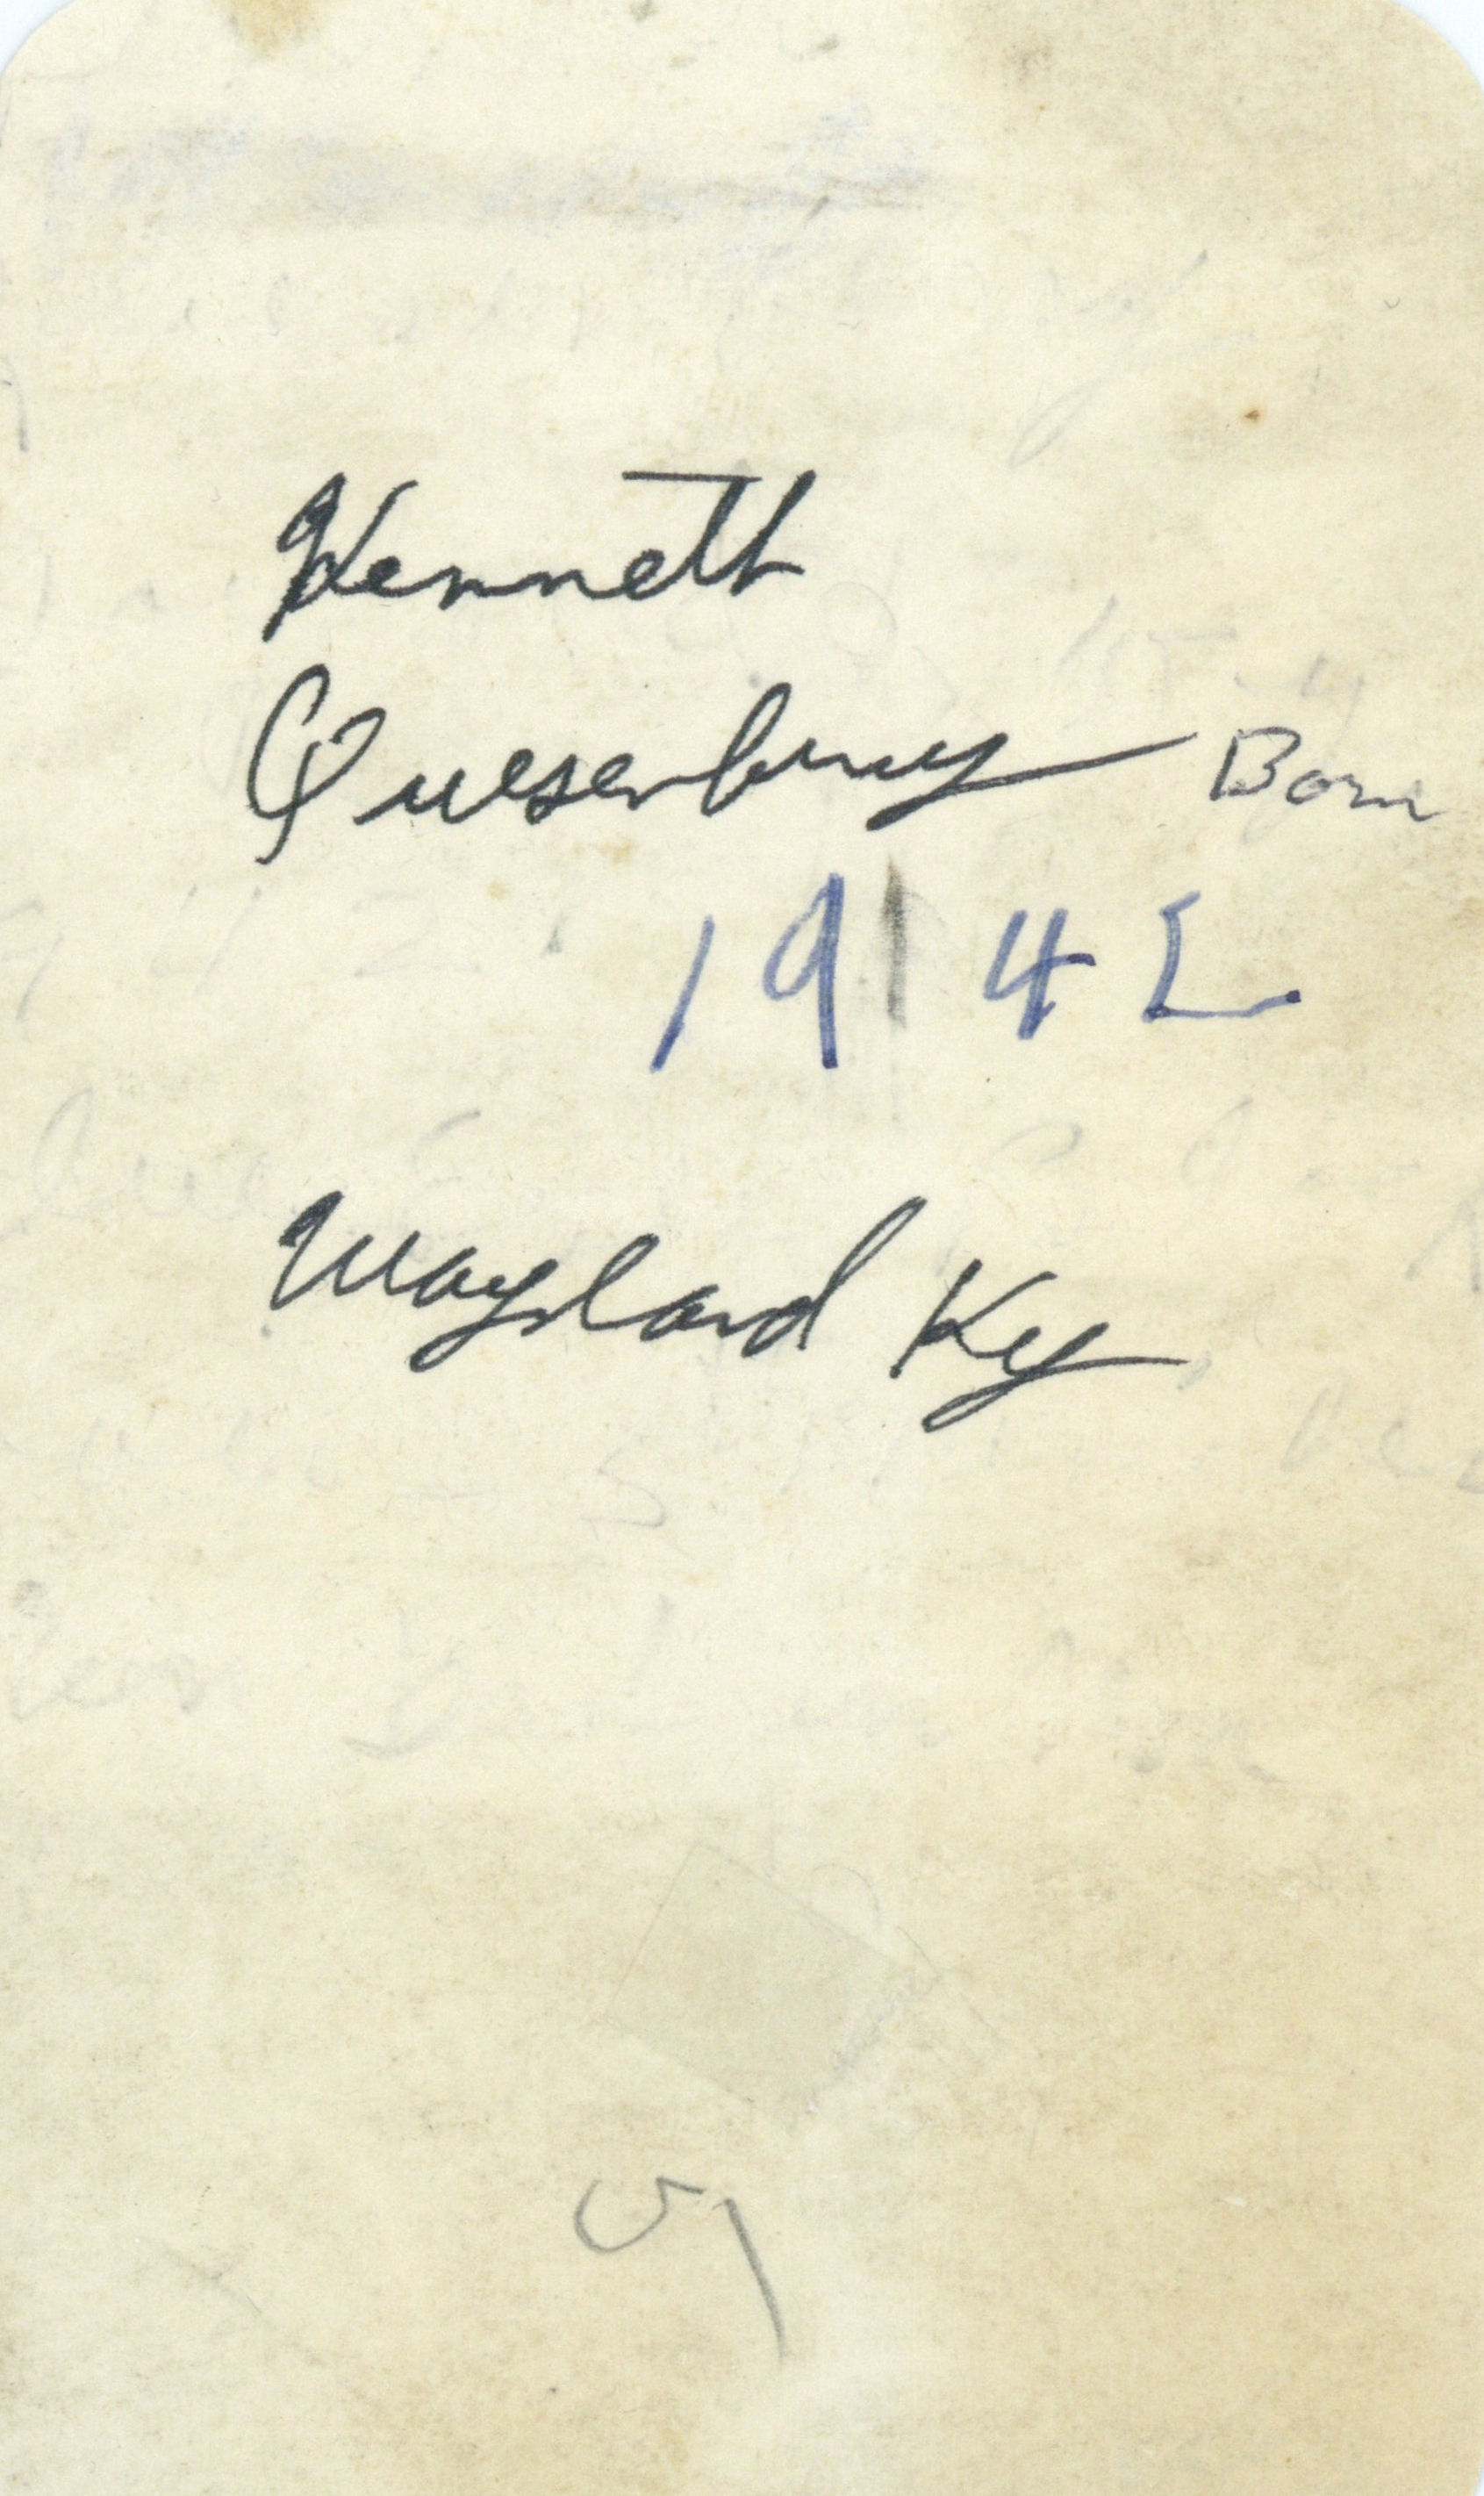 Kenneth
Quesenbury Born
1942
Wayland Ky